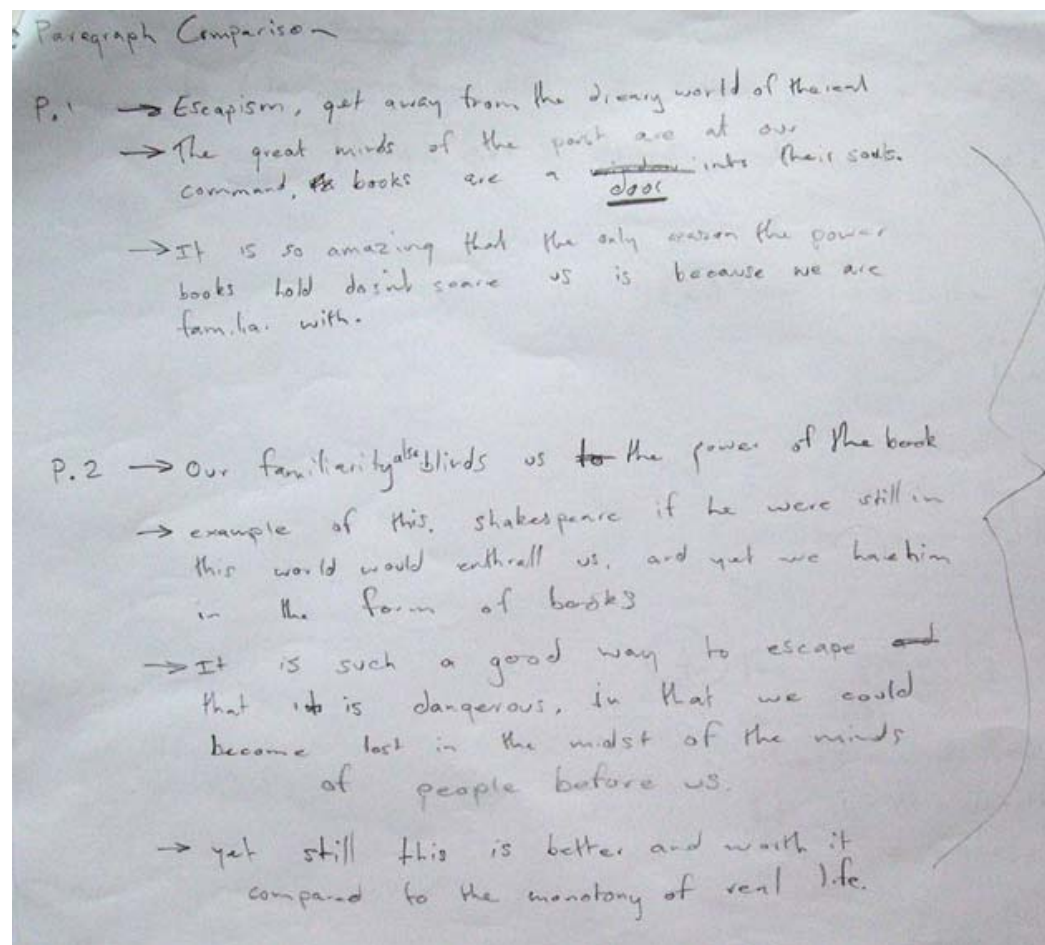 Paragraph Comparison
P.1 → Escapism, get away from the dreary world of the real
→ The great minds of the past are at our
command, books are a window into their souls.
door
→ It is so amazing that the only reason the power
books hold dosint scare us is because we are
familiar with.
P.2 → Our familiarity also blinds us to the power of the book
→ example of this. shakespeare if he were still in
this world would enthrall us, and yet we have him
in the form of books
→ It is such a good way to escape and
that it is dangerous, in that we could
become lost in the midst of the minds
of people before us.
→ yet still this is better and worth it
compared to the monotony of real life.